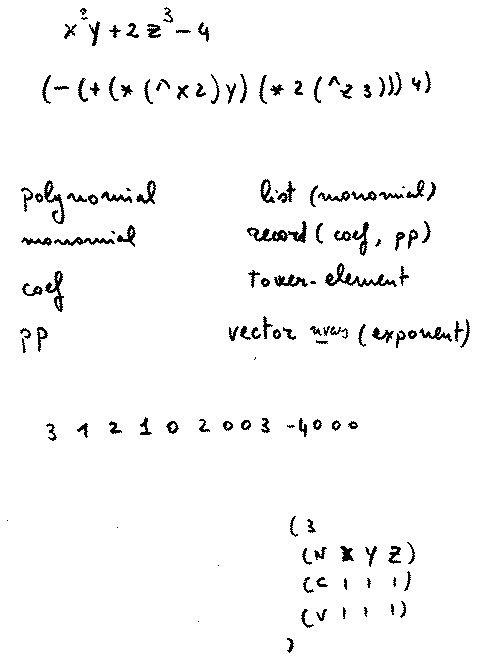 x²y + 2z³ - 4
(-(+(*(^x2)y)(*2(^z3)))4)
polynomial list (monomial)
monomial record (coef, pp)
coef tower-element
pp vector nvars (exponent)
3 1 2 1 0 2 0 0 3 -4 0 0 0
(3
(N X Y Z)
(C 1 1 1)
(V 1 1 1)
)